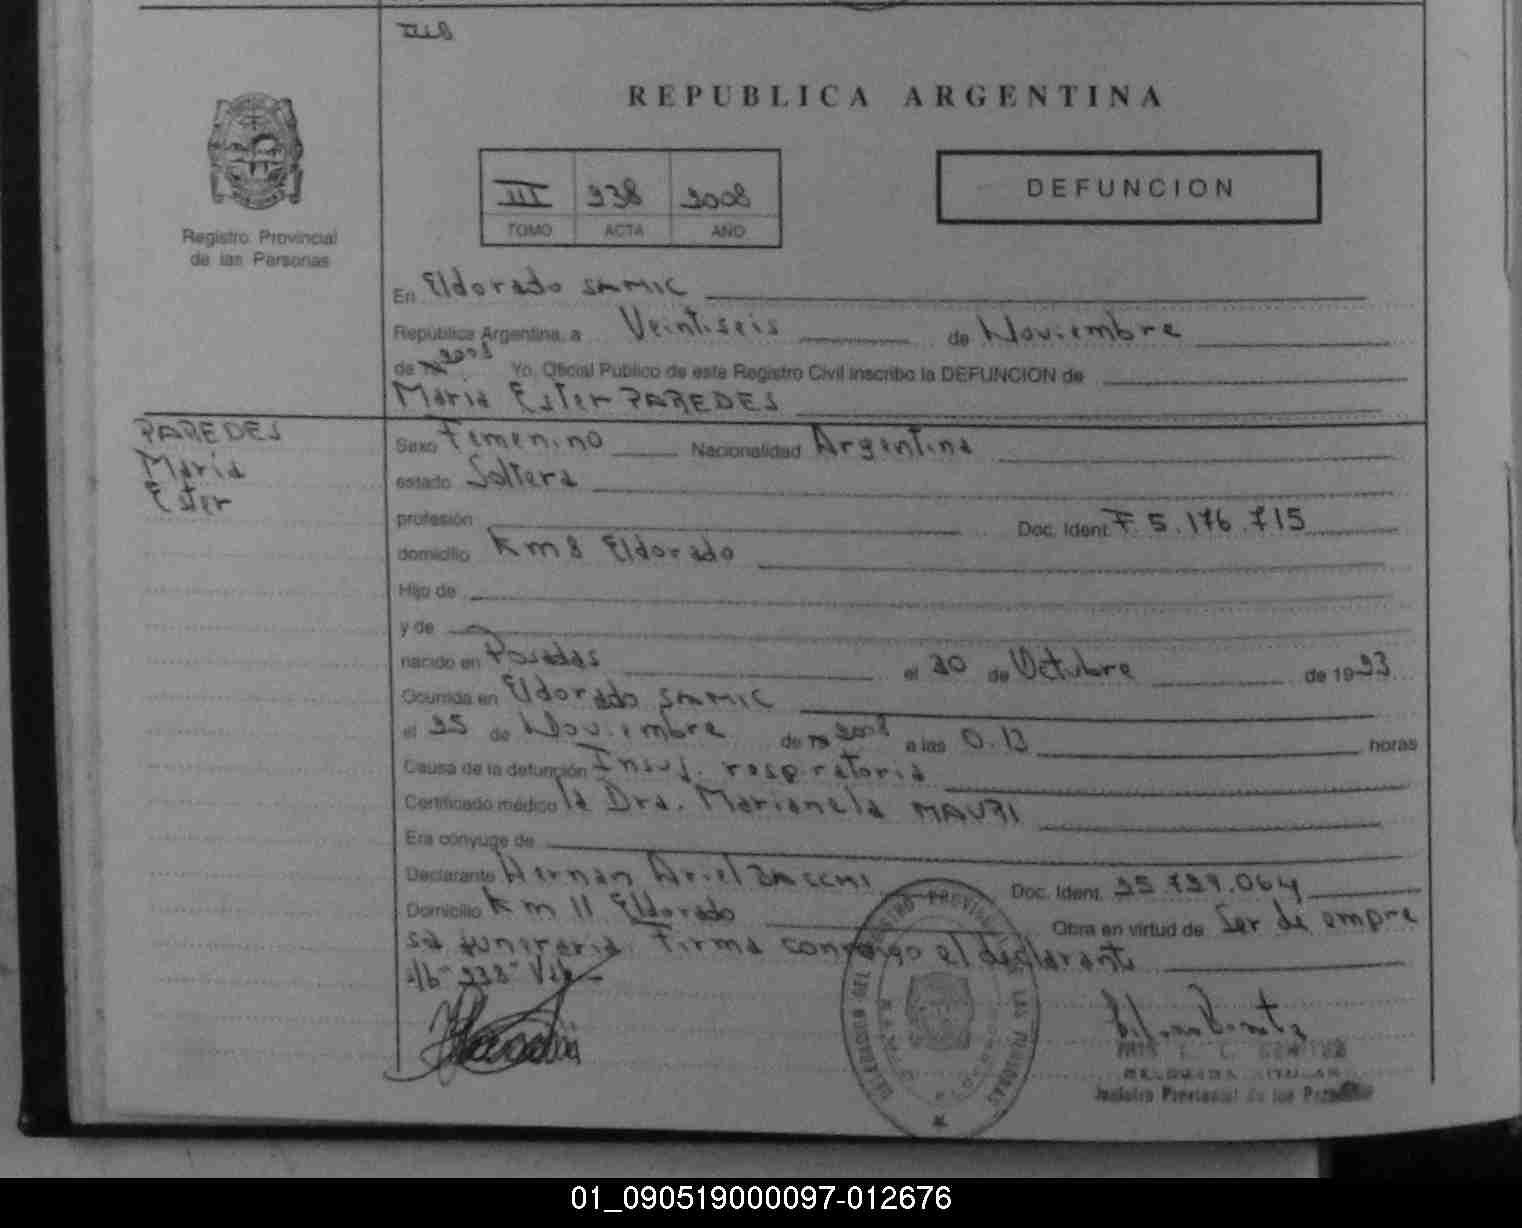 REPUBLICA ARGENTINA
III 238 2008
TOMO ACTA AÑO
DEFUNCION
Registro Provincial
de las Personas
En Eldorado SAMIC
República Argentina, a Veintiseis de Noviembre
de 2008 Yo, Oficial Publico de este Registro Civil inscribo la DEFUNCION de
Maria Ester PAREDES
PAREDES
Maria
Ester
Sexo Femenino Nacionalidad Argentina
estado Soltera
profesión Doc. Ident. F. 5.176.715
domicilio Km 8 Eldorado
Hijo de
y de
nacido en Posadas el 20 de Octubre de 1923
Ocurrida en Eldorado SAMIC
el 25 de Noviembre de 2008 a las 0.13 horas
Causa de la defunción Insuf. respiratoria
Certificado médico la Dra. Marianela MAURI
Era cónyuge de
Declarante Hernan Ariel ZACCHI Doc. Ident. 25.729.064
Domicilio Km 11 Eldorado Obra en virtud de Ser de empre
sa funeraria. Firma conmigo el declarante
s/b "238" Vale
DELEGACION DEL REGISTRO PROVINCIAL DE LAS PERSONAS
DELEGADA TITULAR
Registro Provincial de las Personas
01_090519000097-012676